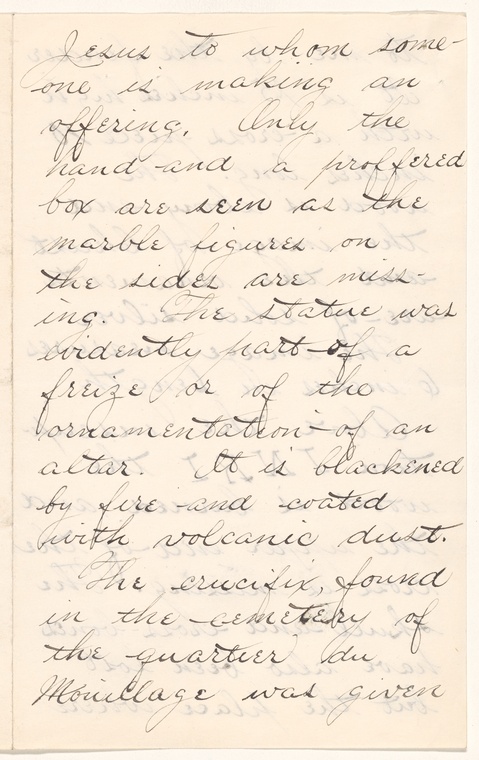 Jesus to whom some-
one is making an
offering. Only the
hand and a proffered
box are seen as the
marble figures on
the sides are miss-
ing. The statue was
evidently part of a
freize or of the
ornamentation of an
altar. It is blackened
by fire and coated
with volcanic dust.
The crucifix, found
in the cemetery of
the quartier du
Mouillage was given